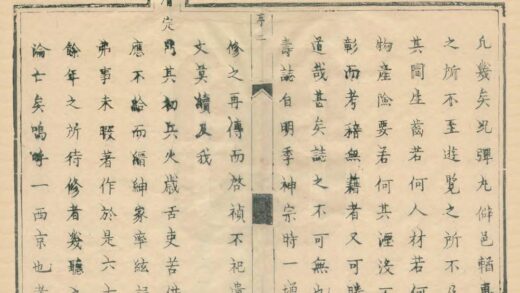 凡幾矣況彈丸僻邑輶車
之所不至遊覽之所不
其間生齒若何人材若何
物產險要若何其湮沒不
彰而考藉無藉者又可勝
道哉甚矣誌之不可無也
壽誌自明季神宗時一增
序二
修之再傳而啓禎不祀遺
文莫續及我
定鼎其初兵火歲舌吏苦供
應不給而縉紳家率絃
弟事未暇著作於是六十
餘年之所待修者幾聽
淪亡矣嗚呼一西京也